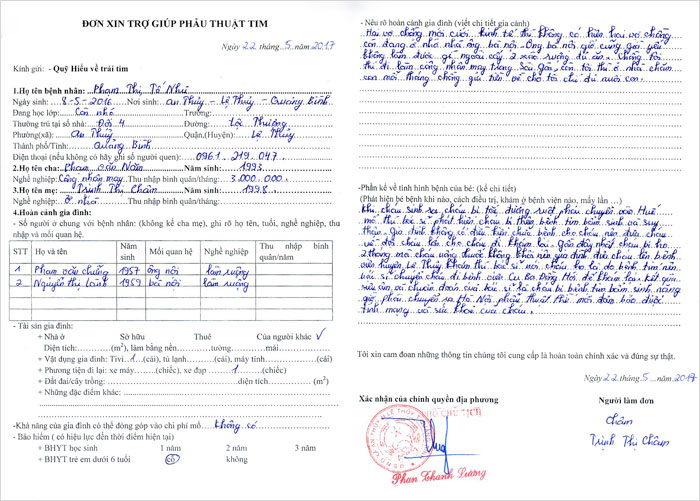 ĐƠN XIN TRỢ GIÚP PHẪU THUẬT TIM
Ngày 22 tháng 5 năm 2017
Kính gửi: - Quỹ Hiểu về trái tim
1.Họ tên bệnh nhân: Phạm Thị Tố Như
Ngày sinh: 8-5-2016 Nơi sinh: An Thủy - Lệ Thủy - Quảng Bình
Đang học lớp: Còn nhỏ Trường:
Thường trú tại số nhà: Đội 4 Đường: Lộc Thượng
Phường(xã): An Thủy Quận,(Huyện): Lệ Thủy
Thành phố/Tỉnh: Quảng Bình
Điện thoại (nếu không có hãy ghi số người quen): 0961.219.047
2.Họ tên cha: Phạm Văn Năm Năm sinh: 1993
Nghề nghiệp: Công nhân may Thu nhập bình quân/tháng: 3.000.000
3.Họ tên mẹ: Trịnh Thị Châm Năm sinh: 1998
Nghề nghiệp: Ở nhà Thu nhập bình quân/tháng:
4.Hoàn cảnh gia đình:
- Số người ở chung với bệnh nhân: (không kể cha mẹ), ghi rõ họ tên, tuổi, nghề nghiệp, thu
nhập và mối quan hệ.
STT Họ và tên Năm sinh Mối quan hệ Nghề nghiệp Thu nhập bình quân/năm
1 Phạm Văn 1957 ông nội làm ruộng
2 Nguyễn Thị 1959 bà nội làm ruộng
- Tài sản gia đình:
+ Nhà ở Sở hữu Thuê Của người khác √
Diện tích:(m2), làm bằng nền tường mái
+ Vật dụng gia đình: Tivi 1 (cái), tủ lạnh (cái), máy tính (cái)
+ Phương tiện đi lại: xe máy (chiếc), xe đạp 1 (chiếc)
+ Đất đai/cây trồng: diện tích (m2)
+ Những đặc điểm khác:
-Khả năng của gia đình có thể đóng góp vào chi phí mổ không có
- Bảo hiểm ( có hiệu lực đến thời điểm hiện tại)
+ BHYT học sinh 1 năm 2 năm 3 năm
+ BHYT trẻ em dưới 6 tuổi có không
- Nêu rõ hoàn cảnh gia đình (viết chi tiết gia cảnh)
Hai vợ chồng mới cưới kinh tế thì không có hiện hai vợ chồng
còn đang ở nhờ nhà ông bà nội. Ông bà nội giờ cũng già yếu
không làm được gì ngoài cấy 2 sào ruộng đủ ăn. Chồng tôi
thì đi làm công nhân may trong Sài Gòn, còn tôi thì ở nhà chăm
con mỗi tháng chồng gửi tiền về cho tôi chỉ đủ nuôi con.
-Phần kể về tình hình bệnh của bé: (kể chi tiết)
(Phát hiện bé bệnh khi nào, cách điều trị, khám ở bệnh viện nào, mấy lần …)
Khi cháu sinh ra cháu bị tắc đường ruột phải chuyển vào Huế
mổ thì bác sĩ phát hiện cháu bị thêm bệnh tim bẩm sinh và suy
thận. Gia đình không có điều kiện chữa bệnh cho cháu nên đưa cháu
về đợi cháu lớn cho cháu đi khám lại. Gần đây nhất cháu bị ho
2 tháng mà cháu uống thuốc không khỏi nên gia đình đưa cháu lên bệnh
viện huyện Lệ Thủy khám thì bác sĩ nói cháu ho là do bệnh tim nên
bác sĩ chuyển cháu đi bệnh viện Cu Ba Đồng Hới để khám làm kết quả
siêu âm và chuẩn đoán của bác sĩ là cháu bị bệnh tim bẩm sinh nặng
giờ phải chuyển ra Hà Nội phẫu thuật thì mới đảm bảo được
tính mạng và sức khỏe của cháu.
Tôi xin cam đoan những thông tin chúng tôi cung cấp là hoàn toàn chính xác và đúng sự thật.
Ngày 22 tháng 5 năm 2017
Xác nhận của chính quyền địa phương Người làm đơn
PHÓ CHỦ TỊCH
Châm
Trịnh Thị Châm
Phan Thanh Lương